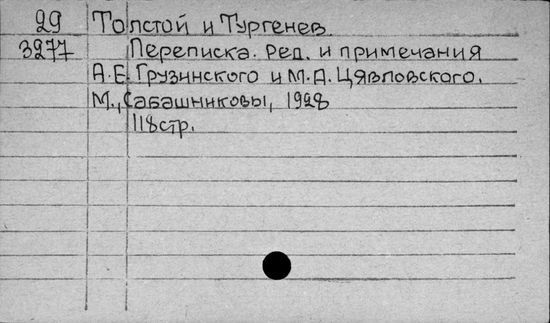 29 Толстой и Тургенев.
3277 Переписка. Ред. и примечания
А.Е. Грузинского и М.А. Цявловского.
М., Сабашниковы, 1928
118стр.